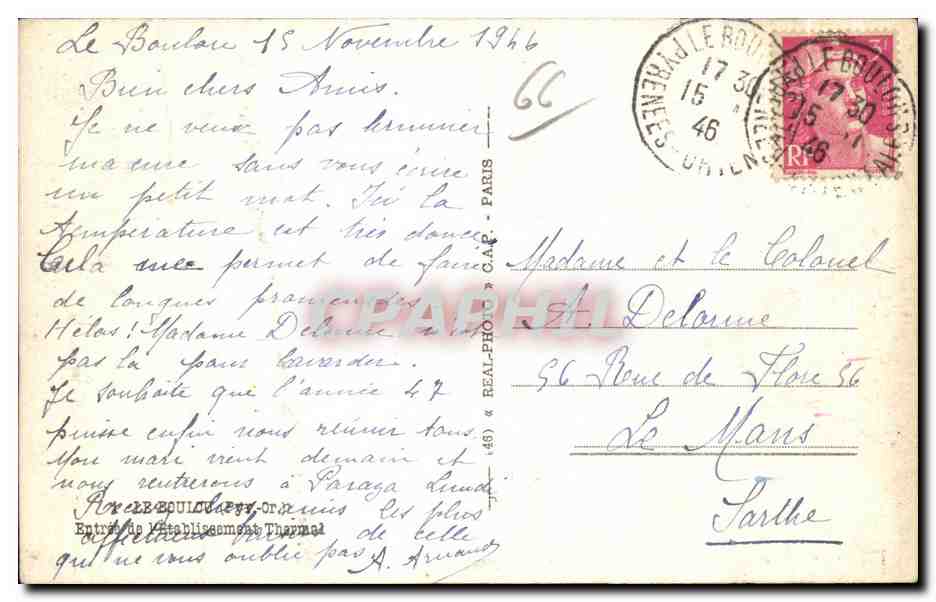 Le Boulou 15 Novembre 1946
Bien chers Amis.
Je ne veux pas terminer
ma cure sans vous écrire
un petit mot. Ici la
température est très douce
Cela me permet de faire
de longues promenades
Hélas! Madame Delorme n'est
pas là pour bavarder.
Je souhaite que l'année 47
puisse enfin nous réunir tous.
Mon mari vient demain et
nous rentrerons à Lundi
Recevez chers amis les plus
affectueux baisers de celle
qui ne vous oublie pas A. Armand
LE BOULOU (Pyr.-Or.)
Entrée de l'Établissement Thermal
(46) « REAL-PHOTO » C.A.P. - PARIS
66
LE BOULOU
PYRENEES-ORIENTALES
17 30
15
46
LE BOULOU
17 30
15 11
46
3F
RF
Madame et le Colonel
A. Delorme
56 Rue de Flore 56
Le Mans
Sarthe
CPARAMA